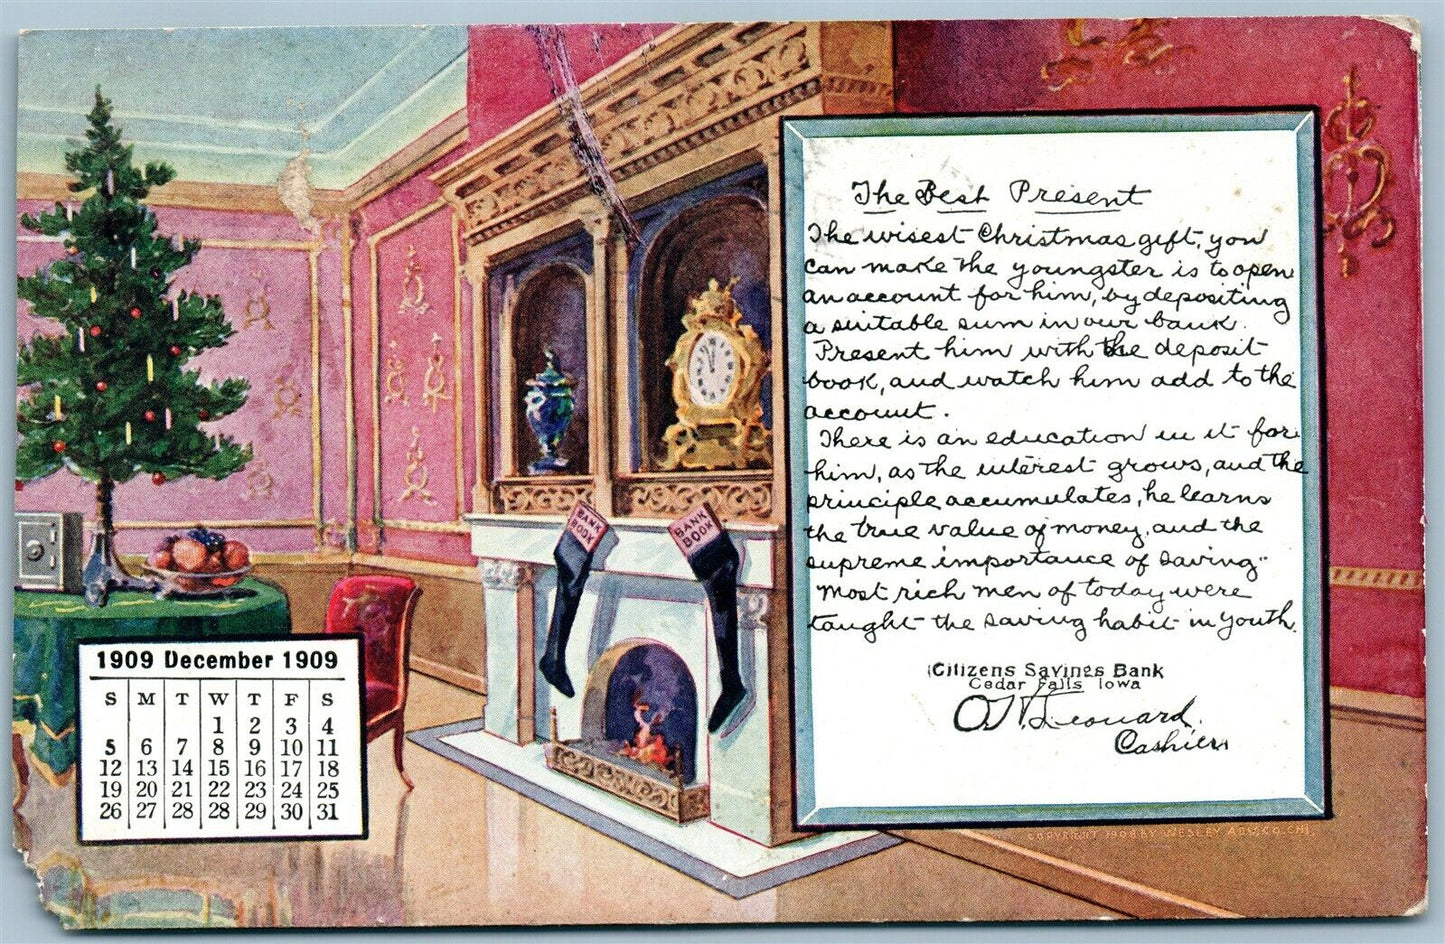 The Best Present
The wisest Christmas gift, you
can make the youngster is to open
an account for him, by depositing
a suitable sum in our bank.
Present him with the deposit
book, and watch him add to the
account.
There is an education in it for
him, as the interest grows, and the
principle accumulates, he learns
the true value of money, and the
supreme importance of saving"
Most rich men of today were
taught the saving habit in youth.
Citizens Savings Bank
Cedar Falls Iowa
Leonard.
Cashier
BANK BOOK
BANK BOOK
1909 December 1909
S M T W T F S
1 2 3 4
5 6 7 8 9 10 11
12 13 14 15 16 17 18
19 20 21 22 23 24 25
26 27 28 28 29 30 31
COPYRIGHT 1908 BY WESLEY ADV. CO. CHI.